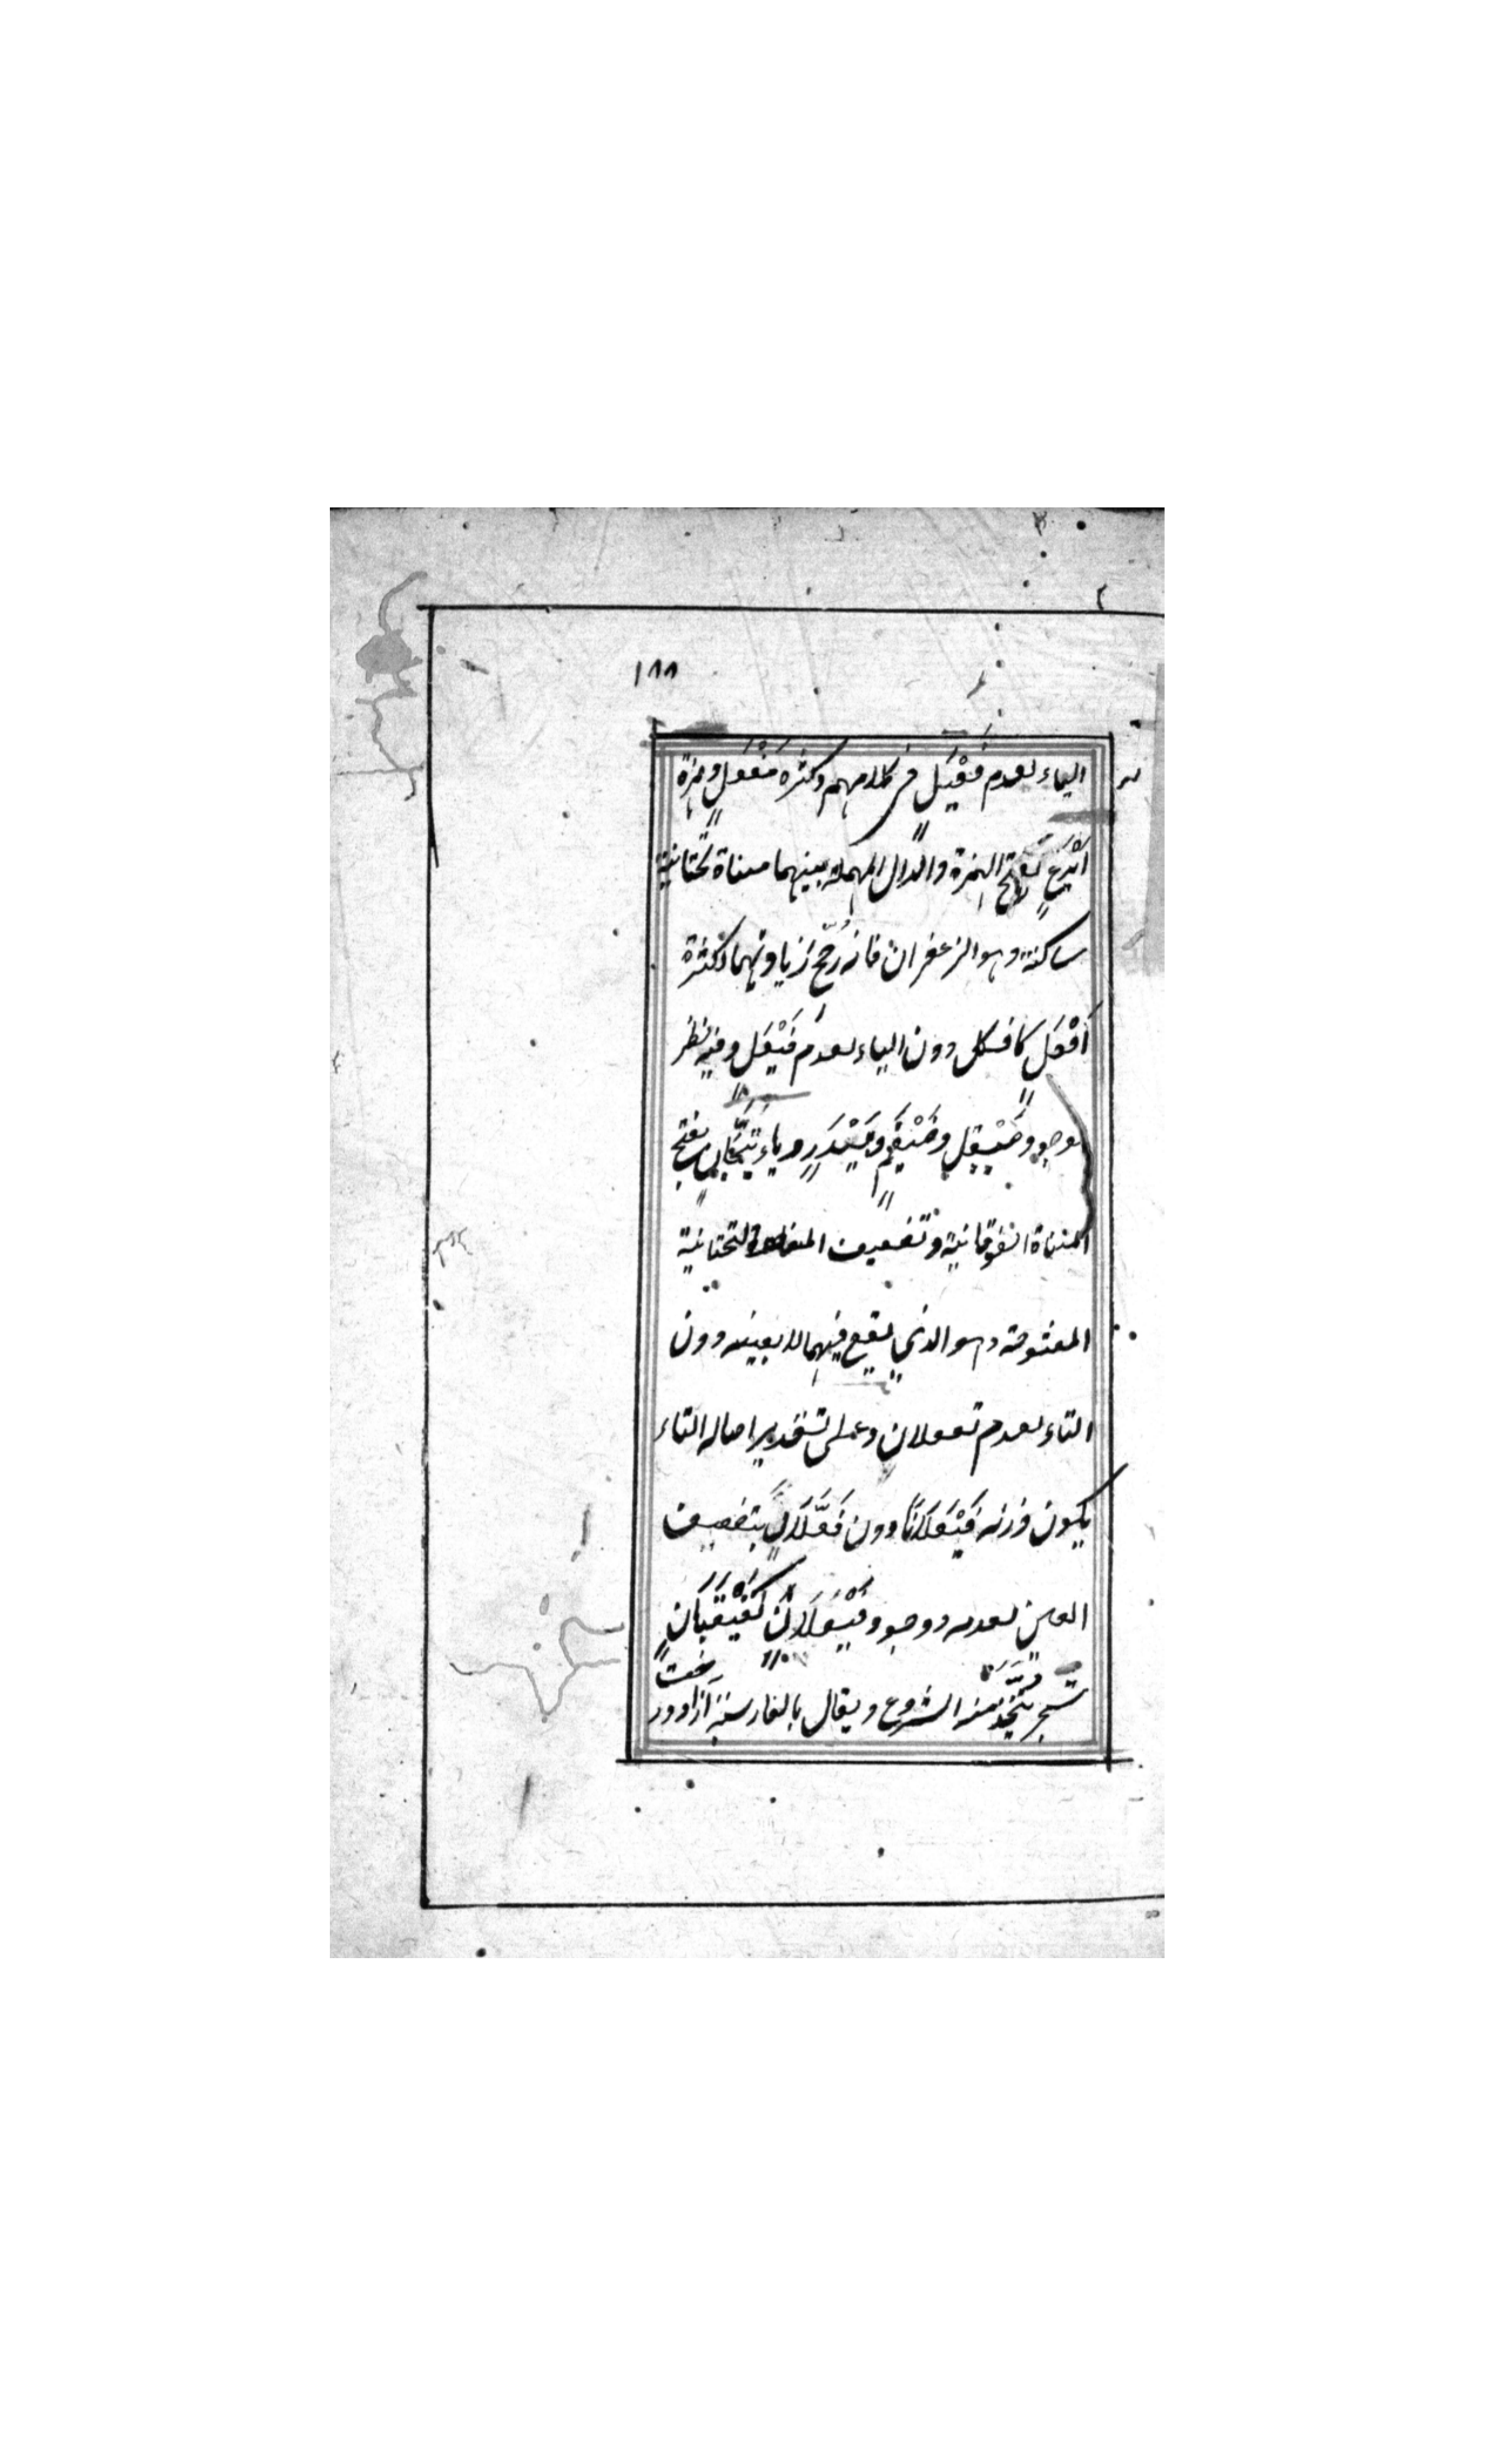 ١٨٨
الياء لعدم فَعْيَلٍ فى كلامهم وكثرة مَفْعَلٍ وهمزة
اَيْدَعٍ بفتح الهمزة والدال المهملة بينهما مثناة تحتانية
ساكنة وهو الزعفران فانه رُجّح زيادتهما لكثرة
اَفْعَلٍ كافكل دون الياء لعدم فَيْعَلٍ وفيه نظر
لوجود صَيْقلٍ وضَيْغَمٍ و وياء تَيَّحَانٍ بفتح
المثناة الفوقانية وتضعيف المثناة التحتانية
المفتوحة وهو الذي يقع فيما لا يعينه دون
التاء لعدم تفعلان وعلى تقدير اصالة التاء
يكون وزنه فَيْعَلَانًا دون فَعَّلَالٍ بتضعيف
العين لعدمه ووجود فَيْعَلَانٍ كَقَيْقَبَانٍ
شجر يُتّخذ منه السروج ويقال بالفارسية آزاد درخت